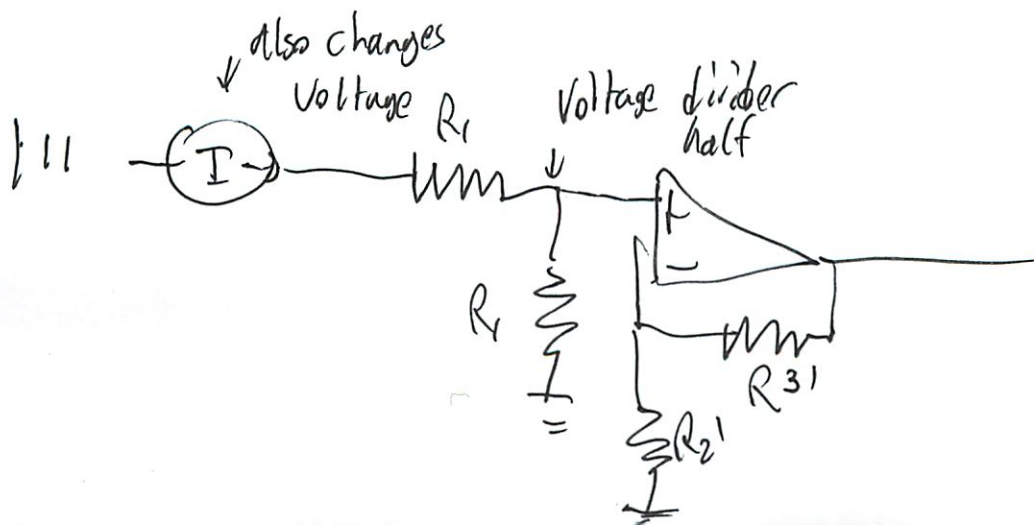 also changes
voltage
Voltage divider
half
R1
I
+
-
R1
R3'
R2'